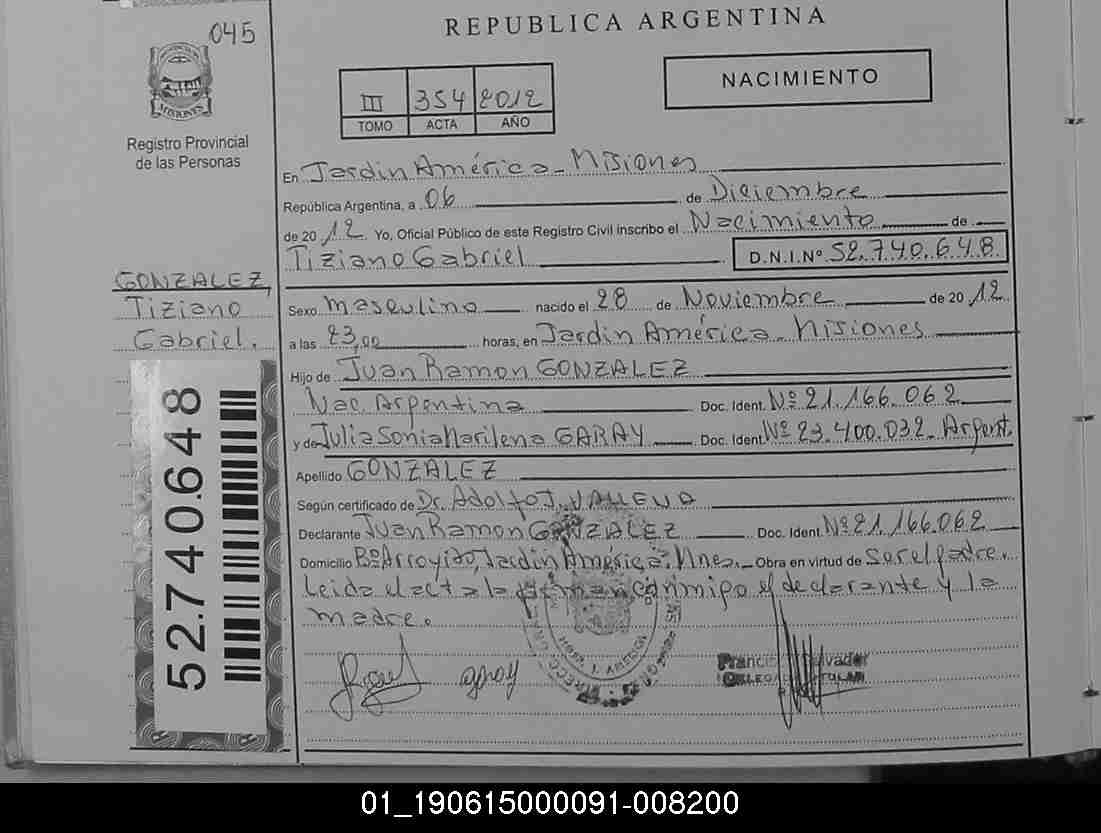 045
REPUBLICA ARGENTINA
III 354 2012
TOMO ACTA AÑO
NACIMIENTO
MISIONES
Registro Provincial
de las Personas
En Jardin América - Misiones
República Argentina, a 06 de Diciembre
de 2012 Yo, Oficial Público de este Registro Civil inscribo el Nacimiento de
Tiziano Gabriel D.N.I. Nº 52.740.648
GONZALEZ,
Tiziano
Gabriel.
Sexo masculino nacido el 28 de Noviembre de 2012
a las 23,00 horas, en Jardin América - Misiones
Hijo de Juan Ramon GONZALEZ
Nac. Argentina Doc. Ident. Nº 21.166.062
y de Julia Sonia Marilena GARAY Doc. Ident. Nº 23.400.032 - Argent.
Apellido GONZALEZ
Según certificado de Dr. Adolfo J.
Declarante Juan Ramon GONZALEZ Doc. Ident. Nº 21.166.062
Domicilio Bº Arroyito, Jardin América, Mnes. Obra en virtud de ser el padre.
Leida el acta la firman conmigo el declarante y la
madre.
52.740.648
01_190615000091-008200